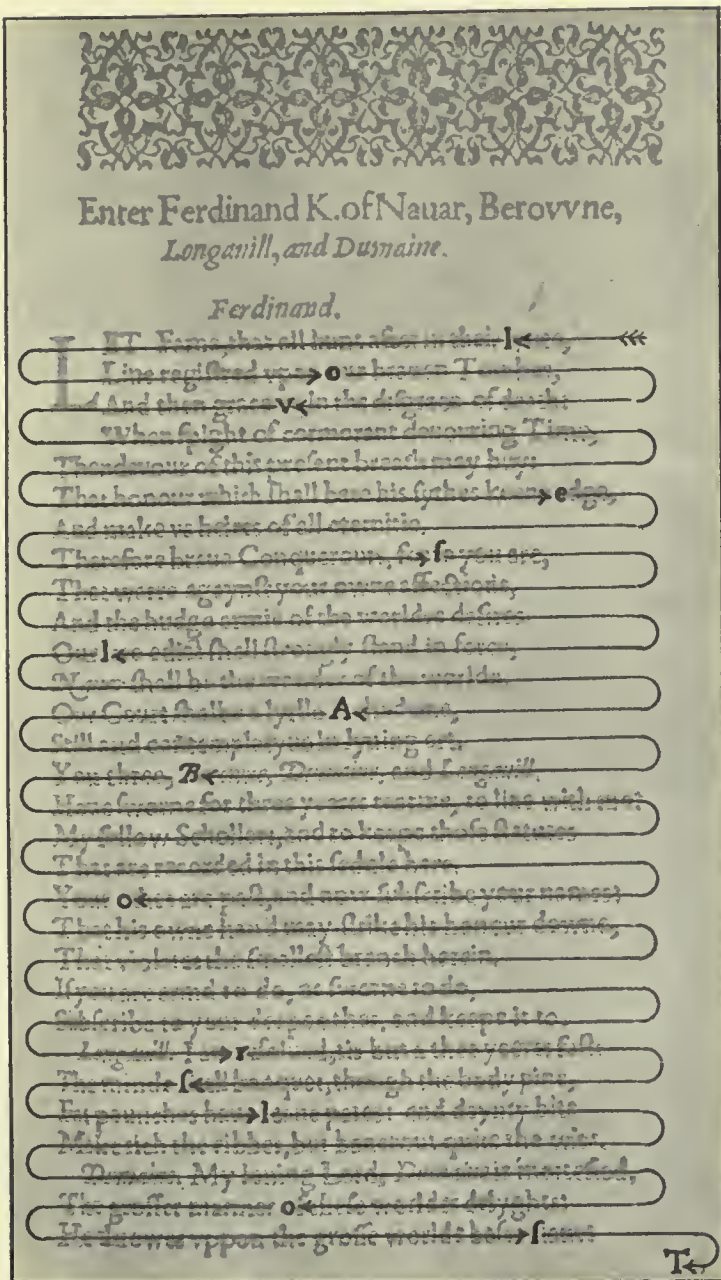 Enter Ferdinand K. of Nauar, Berovvne,
Longauill, and Dumaine.
Ferdinand.
LET Fame, that all hunt after in their lyues,
Liue regiſtred vpon our brazen Tombes,
And then grace vs in the diſgrace of death:
When ſpight of cormorant deuouring Time,
Thendeuour of this preſent breath may buy:
That honour which ſhall bate his ſythes keene edge,
And make vs heires of all eternitie.
Therefore braue Conquerours, for ſo you are,
That warre agaynſt your owne affections,
And the hudge armie of the worldes deſires.
Our late edict ſhall ſtrongly ſtand in force,
Nauar ſhall be the wonder of the worlde.
Our Court ſhalbe a lyttle Achademe,
Still and contemplatyue in lyuing art.
You three, Berowne, Dumaine, and Longauill,
Haue ſworne for three yeeres tearme, to liue with me:
My fellow Schollers, and to keepe thoſe ſtatutes
That are recorded in this ſedule here.
Your othes are paſt, and now ſubſcribe your names:
That his owne hand may ſtrike his honour downe,
That violates the ſmalleſt branch herein,
If you are armd to do, as ſworne to do,
Subſcribe to your deepe othes, and keepe it to.
Longauill. I am reſolued, tis but a three yeeres faſt:
The minde ſhall banquet, though the body pine,
Fat paunches haue leane pates: and daynty bits
Make rich the ribbes, but
Dumaine. My louing Lord, Dumaine is mortefied,
The groſſer manner of theſe worldes delyghts:
He throwes vppon the groſſe worlds baſer ſlaues
T